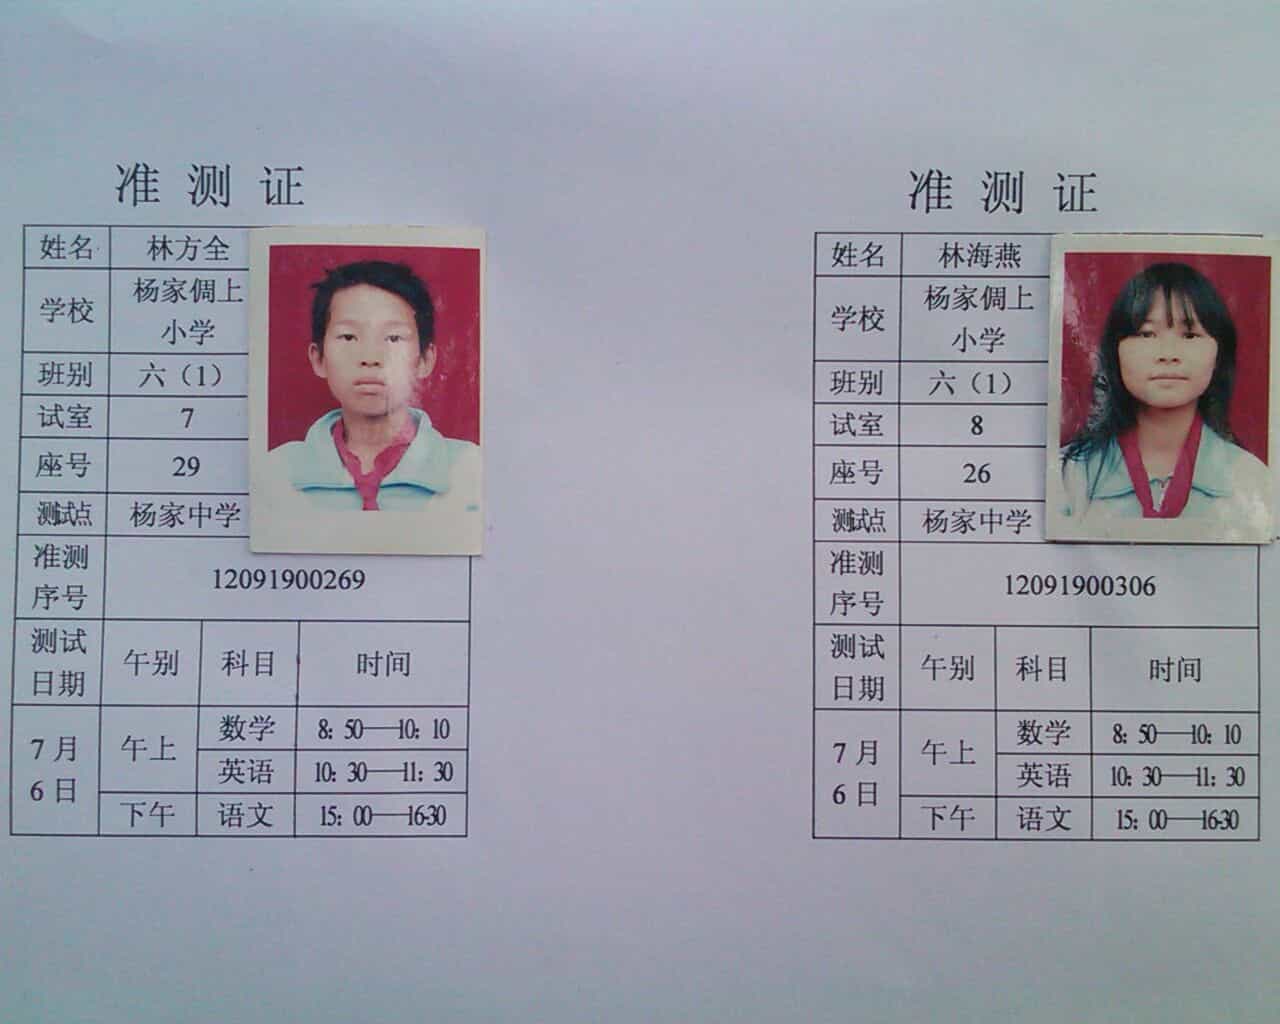 准测证
姓名 林方全
学校 杨家倜上
小学
班别 六（1）
试室 7
座号 29
测试点 杨家中学
准测
序号
12091900269
测试
日期
午别 科目 时间
7月
6日
午上
数学 8：50——10：10
英语 10：30——11：30
下午 语文 15：00——16-30
准测证
姓名 林海燕
学校 杨家倜上
小学
班别 六（1）
试室 8
座号 26
测试点 杨家中学
准测
序号
12091900306
测试
日期
午别 科目 时间
7月
6日
午上
数学 8：50——10：10
英语 10：30——11：30
下午 语文 15：00——16-30